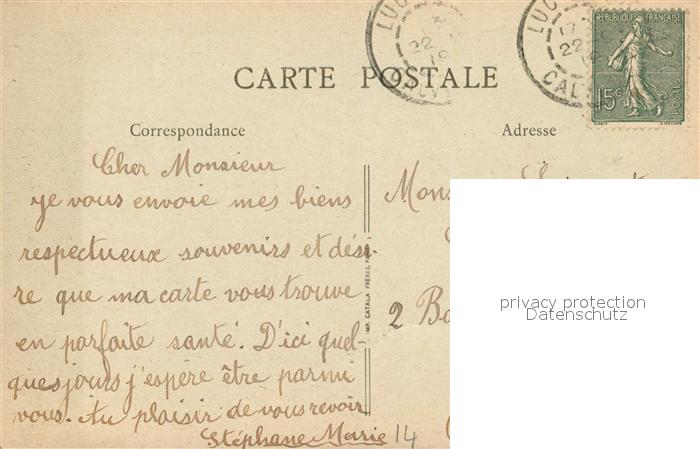 LUC
22
CALV
LUC
17
22
CAL
RÉPUBLIQUE FRANÇAISE
15c
POSTES
CARTE POSTALE
Correspondance
Adresse
Cher Monsieur
je vous envoie mes biens
respectueux souvenirs et dési-
re que ma carte vous trouve
en parfaite santé. D'ici quel-
ques jours j'espère être parmi
vous. Au plaisir de vous revoir
Stéphane Marie 14
IMP. CATALA FRÈRES
2
privacy protection
Datenschutz